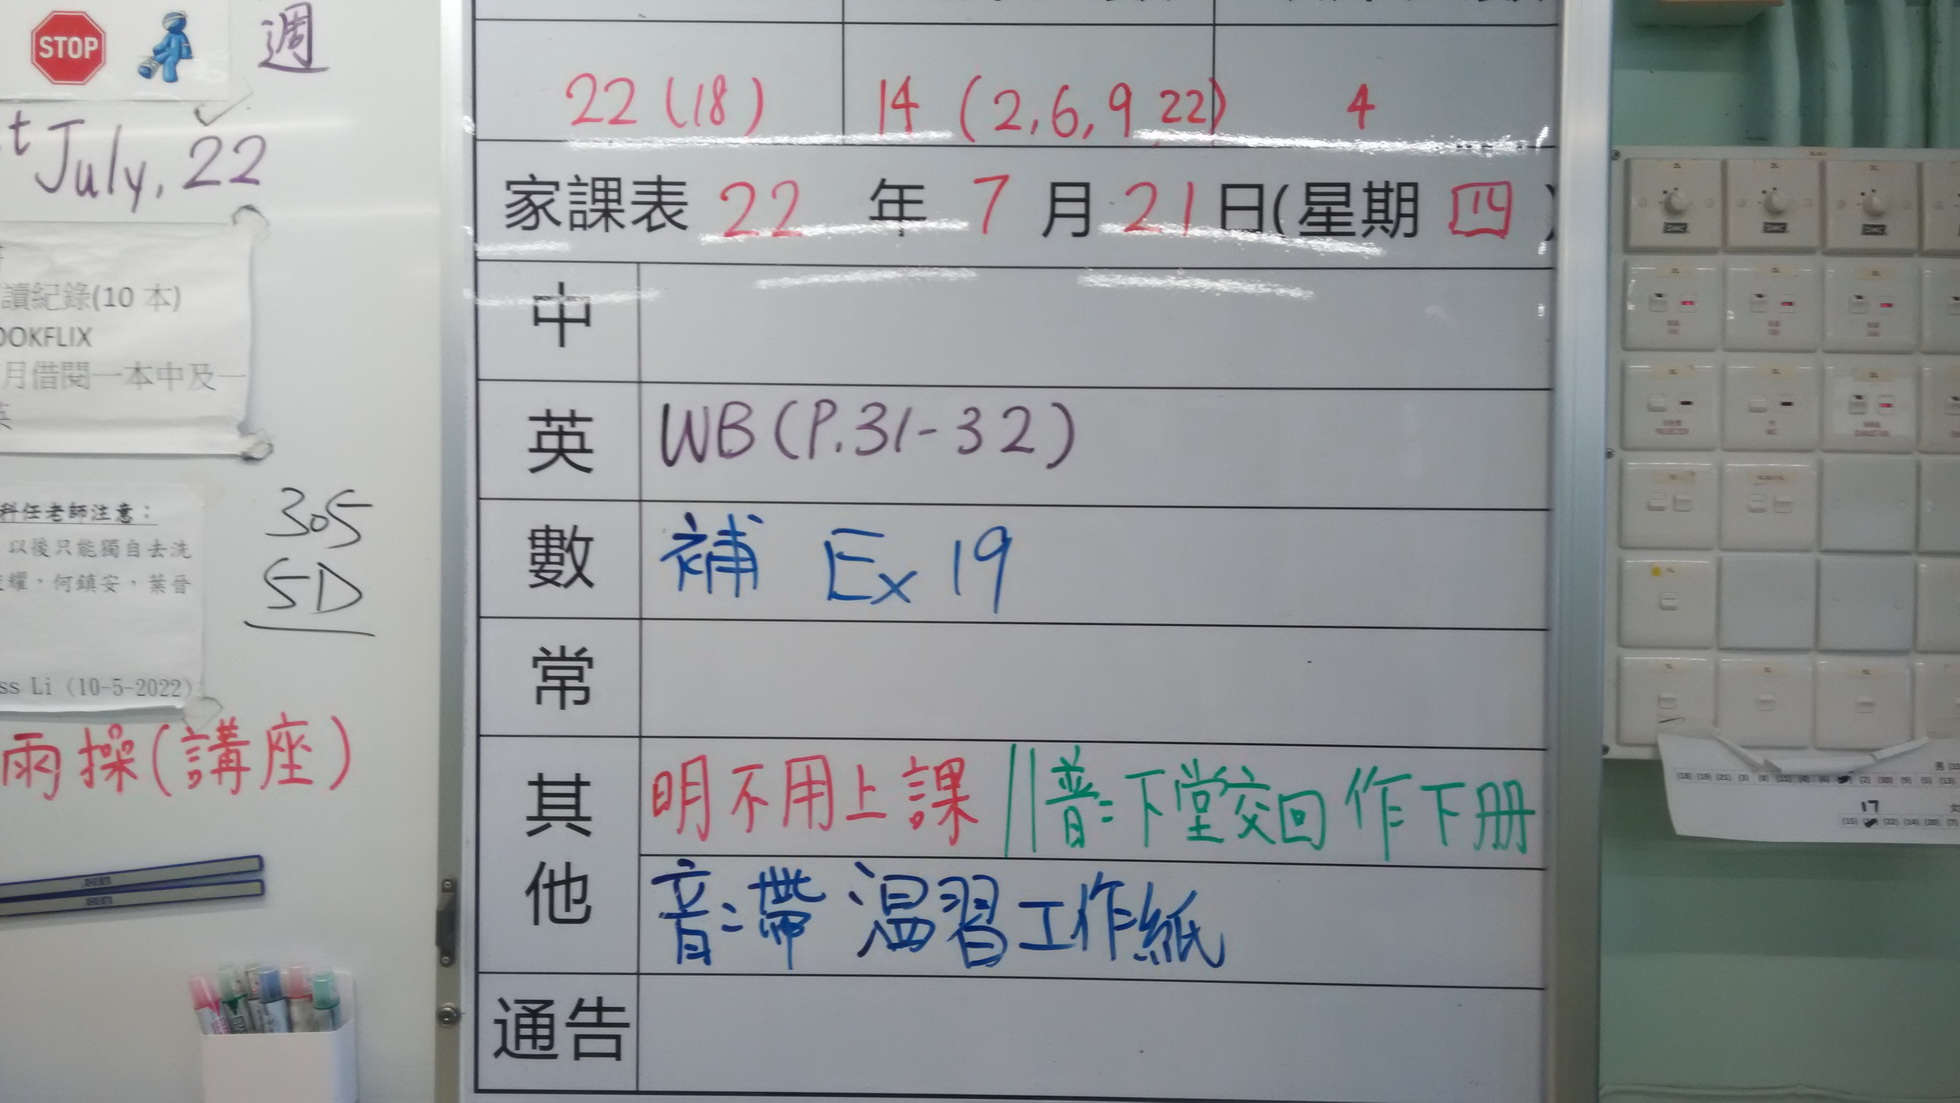 STOP
週
st July, 22
讀紀錄(10 本)
OOKFLIX
月借閱一本中及一
英
科任老師注意：
以後只能獨自去洗
耀，何鎮安，葉晉
ss Li (10-5-2022)
305
5D
雨操(講座)
22 (18) 14 (2,6,9,22) 4
家課表 22 年 7 月 21 日(星期 四 )
中
英 WB(P.31-32)
數 補 Ex 19
常
其他
明不用上課 || 普:下堂交回 作下册
音:帶 溫習工作紙
通告
17